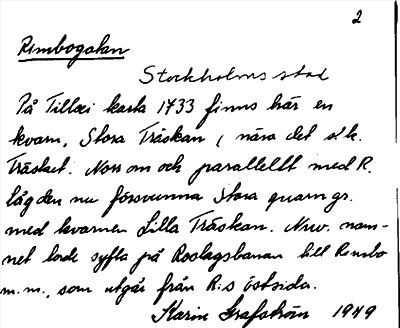 2
Rimbogatan
Stockholms stad
På Tillæi karta 1733 finns här en
kvarn, Stora Träskan, nära det s.k.
Träsket. Norr om och parallellt med R.
låg den nu försvunna Stora quarngr.
med kvarnen Lilla Träskan. Nuv. nam-
net torde syfta på Roslagsbanan till Rimbo
m.m., som utgår från R:s östsida.
Karin Grafström 1949